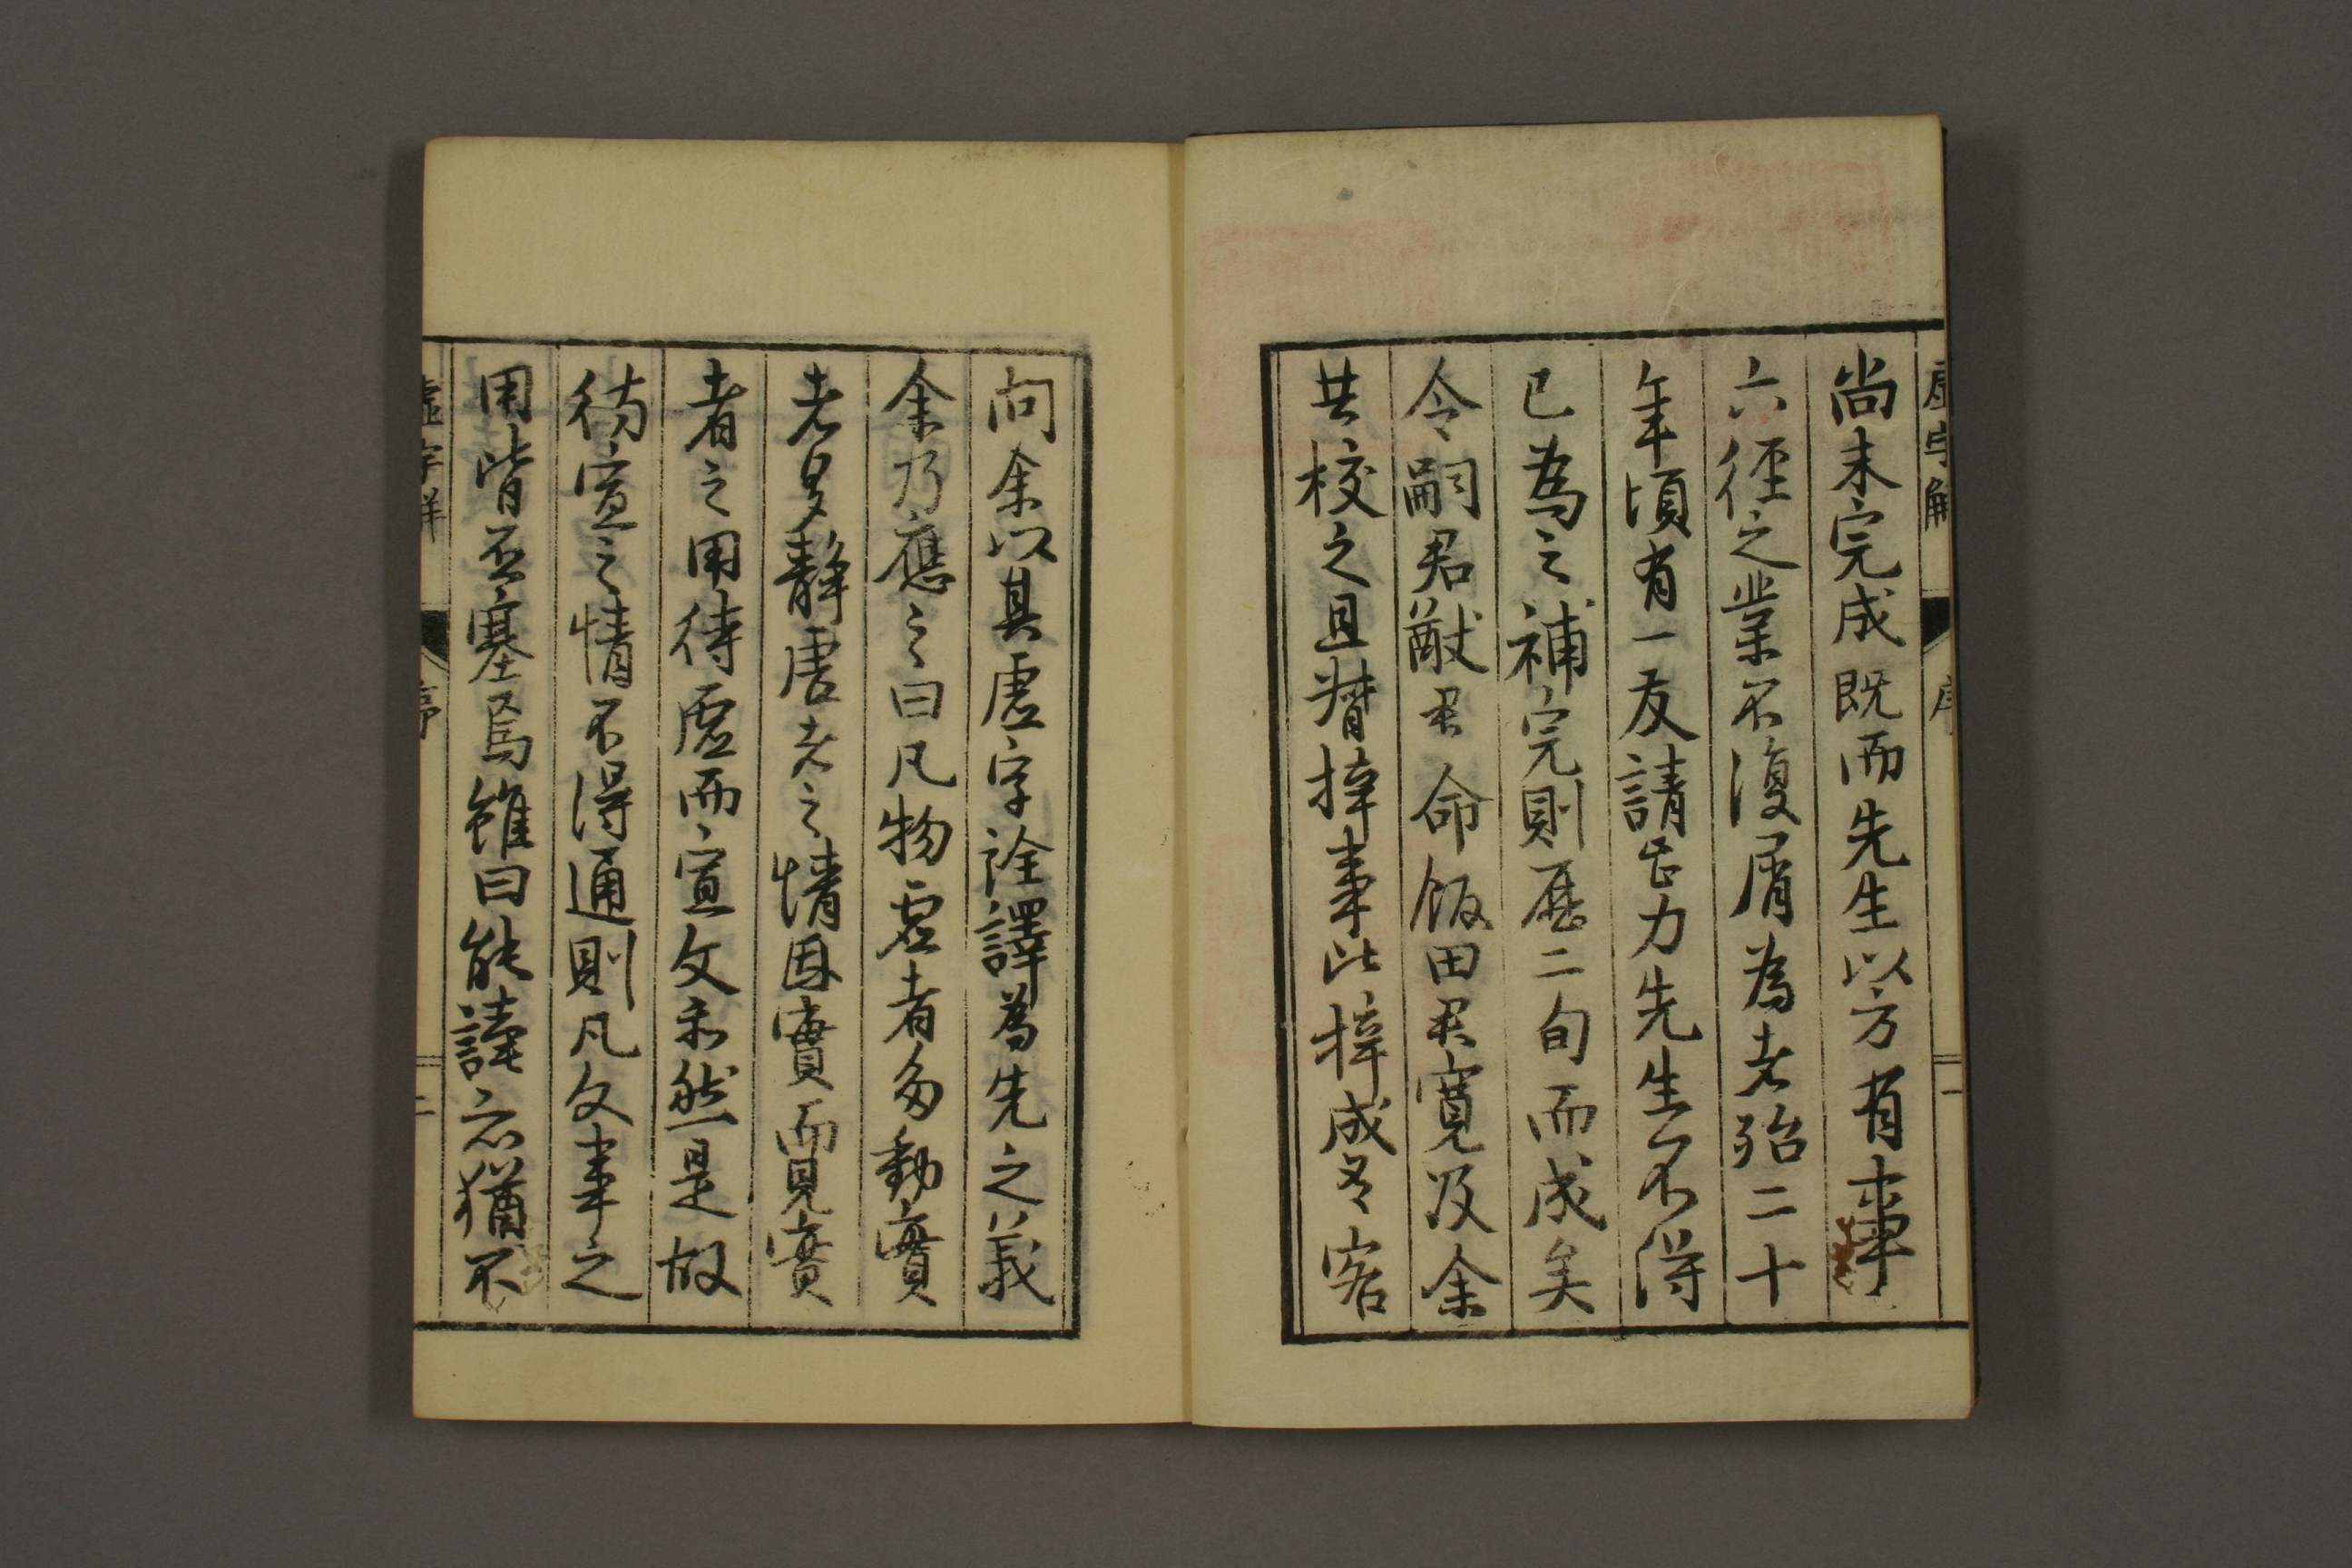 虛字解
序
一
尚未完成既而先生以方有事
六徑之業不復屑為者殆二十
年頃有一友請甚力先生不得
已為之補完則歷二旬而成矣
令嗣君猷君命飯田君寬及余
共校之且督梓事此梓成冬客
問余以其虛字詮譯為先之義
余乃應之曰凡物虛者多動實
者多靜虛者之情因實而見實
者之用待虛而宣文亦然是故
待宣之情不得通則凡文事之
用皆否塞焉雖曰能讀之猶不
虛字解
序
二